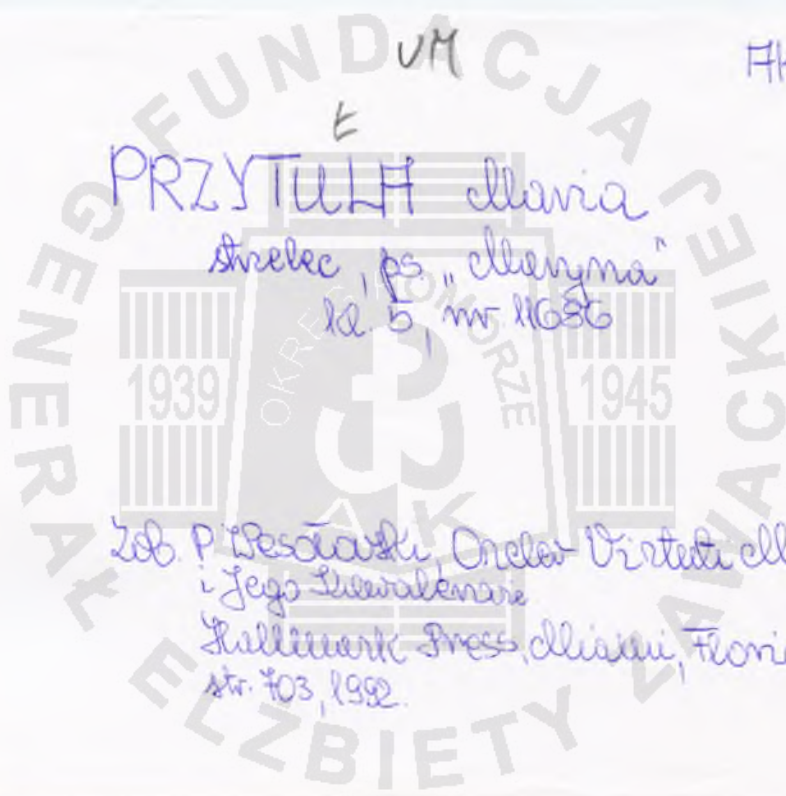 VM
AK
Ł
PRZYTULA Maria
strzelec, ps. „Maryna"
kl. 5, nr 11636
Zob. P. Wesołowski, Order Virtuti M
i Jego Kawalerowie
Hallmark Press, Miami, Flori
str. 703, 1992.
FUNDACJA GENERAŁ ELŻBIETY ZAWACKIEJ
OKRĘG POMORZE
1939
1945
AK